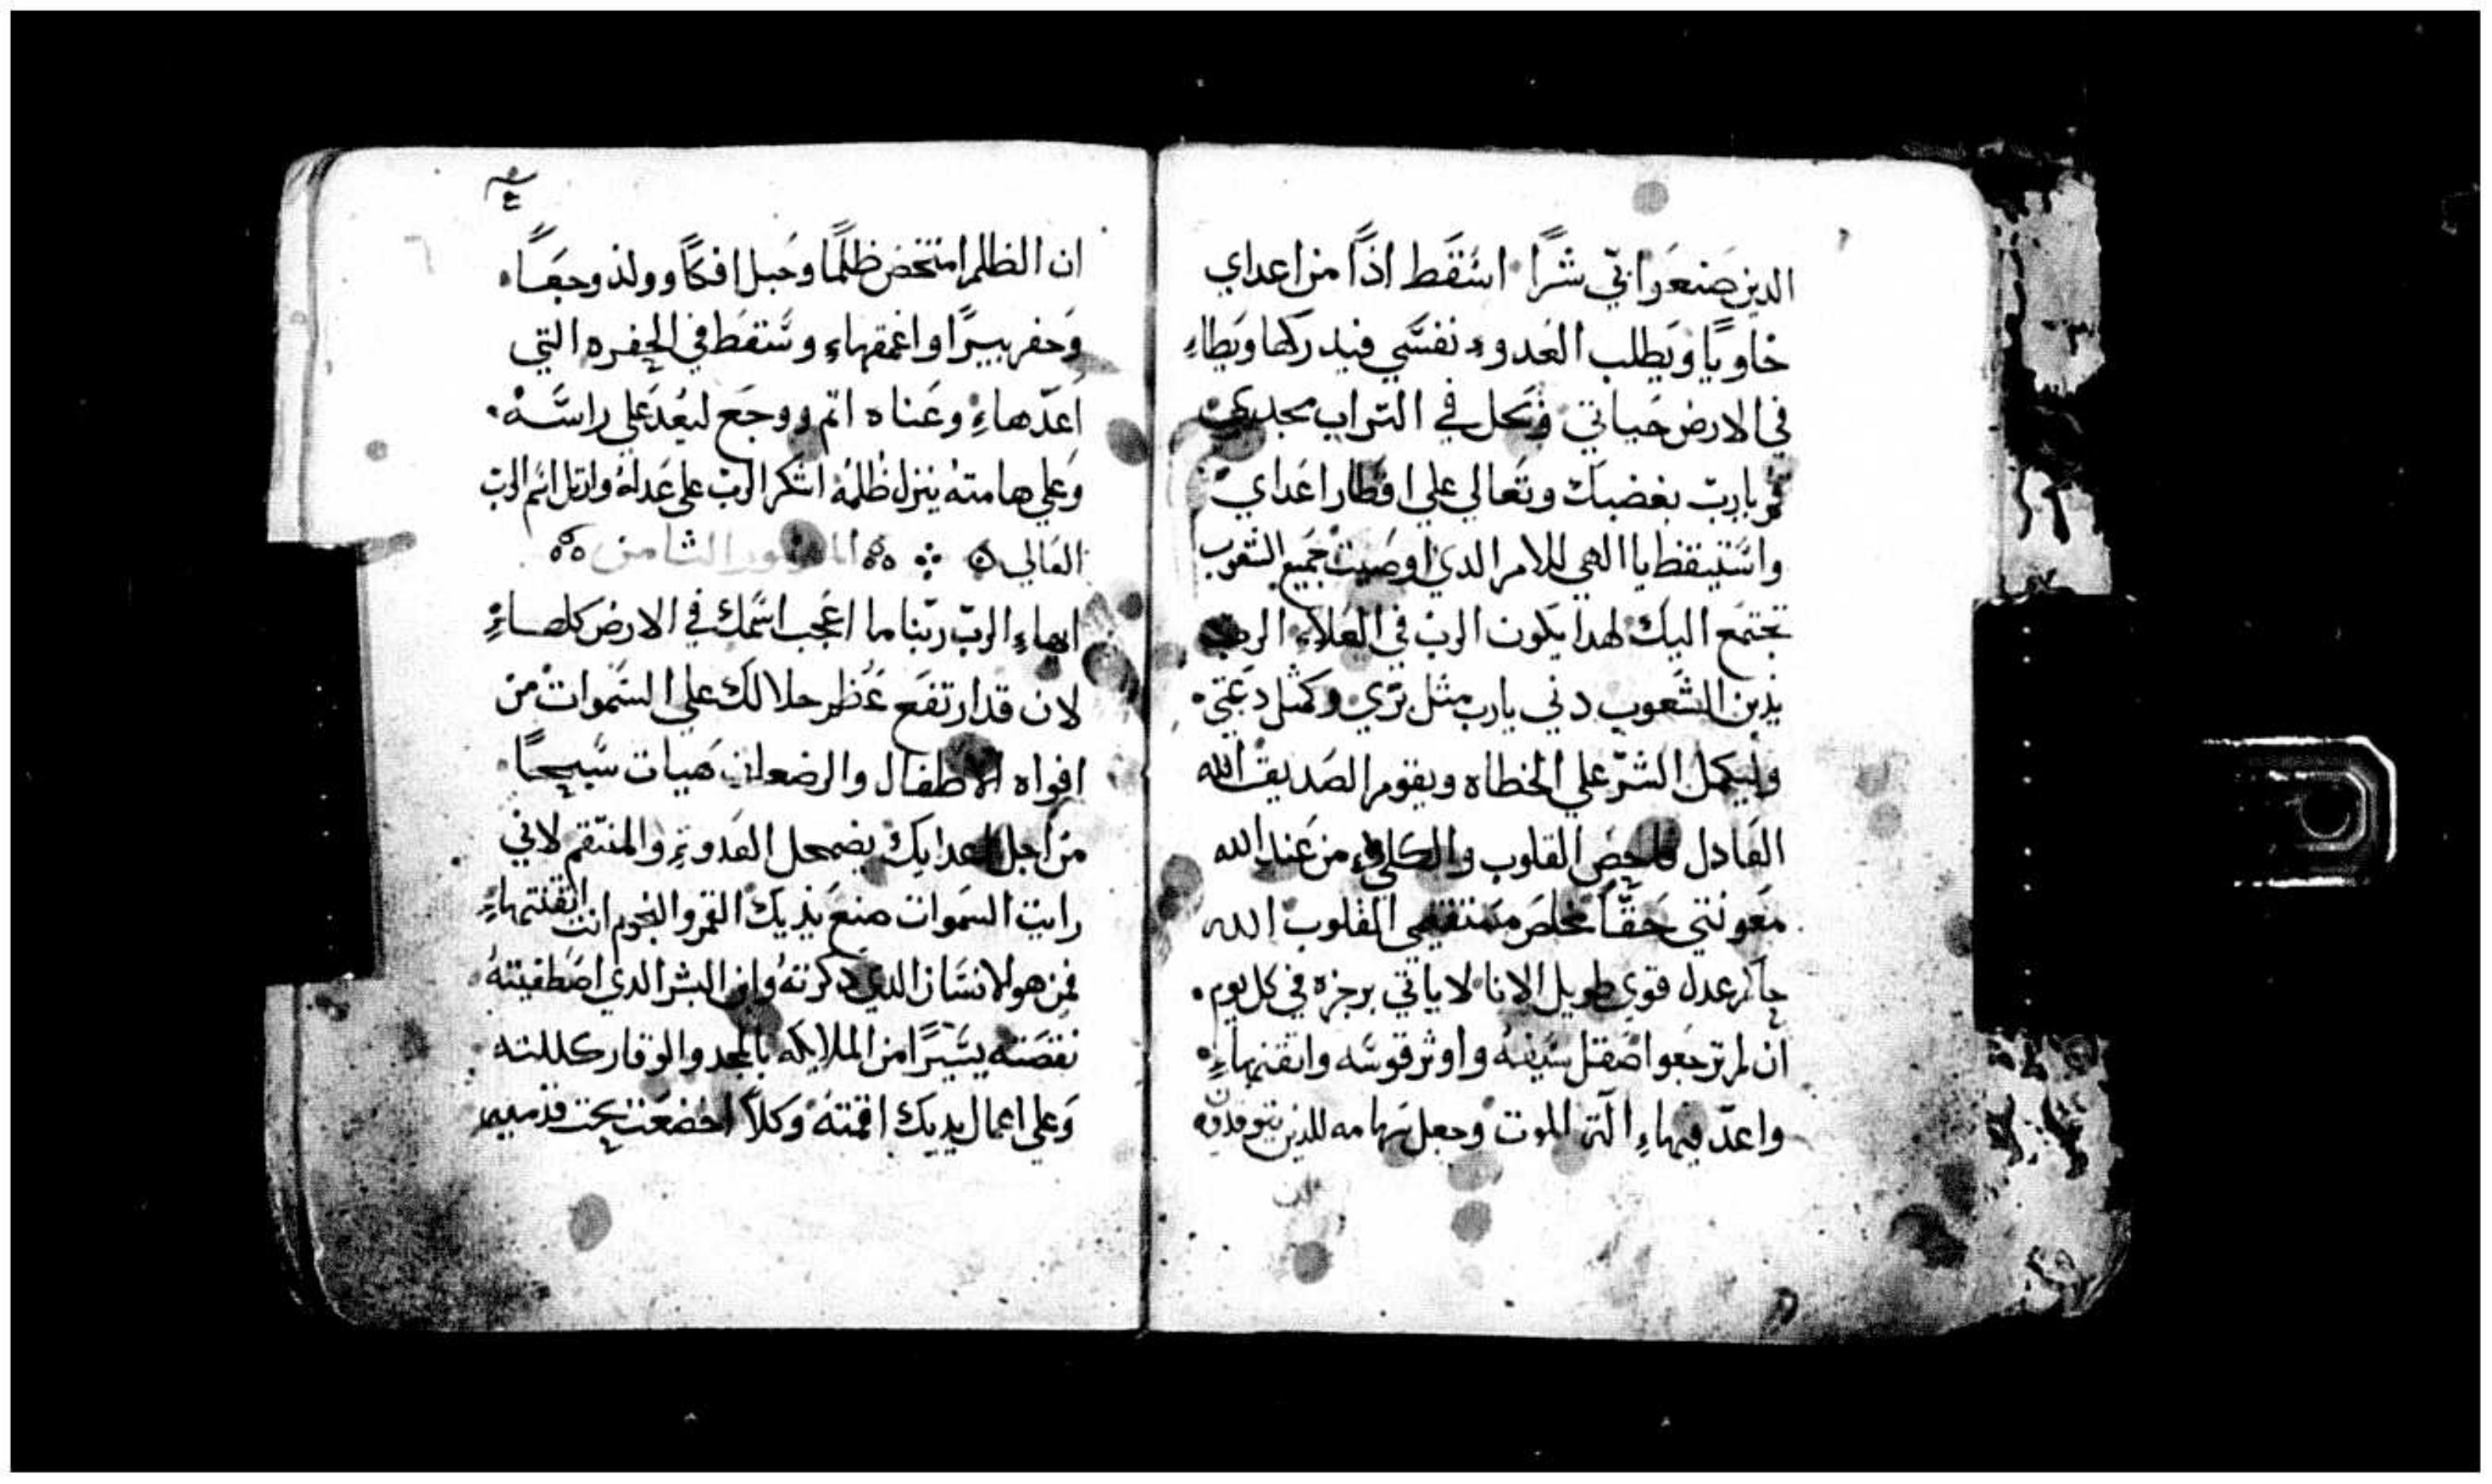 الدين صَنعَوا بي شرًا اسَقَط اذًا من اعداي
خاويًا ويَطلب العَدو نفسَي فيدركها ويَطاءِ
في الارض حَياتي ويَحل في التراب مجدي
قم يارب بغضبك وتعالي علي اقطار اعَداي
واسَتيقظ يا الهي للامر الدي اوصَيت جميع الشعوب
تجتمَع اليك لهدا يكون الرب في العَلاءِ الرب
يدين الشعوب دني يارب مثل بري وكمثل دعَتي
وليكمل الشر علي الخطاه ويقوم الصَديق الله
العَادل فاحص القلوب والكلي من عَند الله
معَونتي حَقًا مخلص مستقيمي القلوب الله
حاكم عدل قوي طويل الانا لا ياتي برجزه في كل يوم
ان لم ترجعَوا صَقل سَيفه واوثر قوسَه واتقنهاءِ
واعدّ فيهاءِ الة الموت وجعل سهامه للدين يتوقدون
ان الظالم امتخض ظلمًا وحَبل افكًا وولد وجعَاً
وَحفر بيرًا واعمقهاءِ وسَتقط في الحفره التي
اعَدّهاءِ وعَناه اثم ووجَع ليعُد علي راسَه
وَعلي هامته ينزل ظلمُه اشكر الرب علي عَدله وارتل اسم الرب
العَالي المزمور الثامن
ايهاءِ الرب ربّنا ما اعَجب اسَمك في الارض كلهاءِ
لان قد ارتفَع عَظم جلالك علي السَموات من
افواه الاطفال والرضعان هَيات سَبحًا
من اجل اعدايك يضمحل العَدو والمنتقم لاني
رايت السَموات صنعَ يديك القمر والنجوم انت اتقنتهاءِ
فمن هو الانسَان الدي دكرته وابن البشر الدي اصَطفيته
نقصَته يسَيرًا من الملايكه بالمجد والوقار كللته
وَعلي اعمال يديك اقمته وَكلاً اخضعَت تحت قدميه